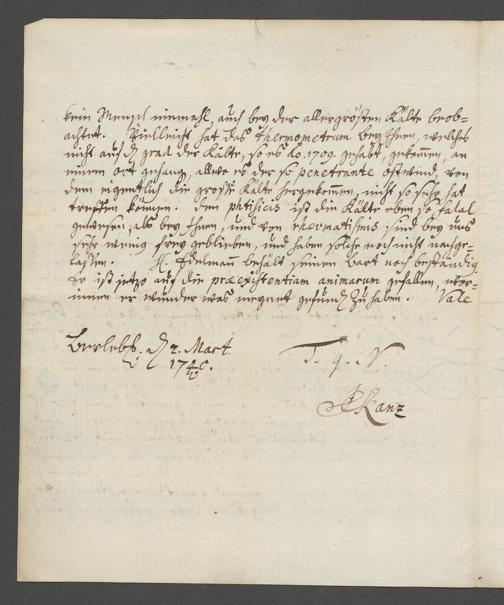 kein Mensch einmahl, auch bey der allergrösten Kälte beob-
achtet. Vielleicht hat das thermometrum bey Ihnen, welches
nicht auf dẽ grad der Kälte, so es Ao. 1709. gehabt, gekom̃en, an
einem ort gehang, allwo es der so penetrante ostwind, von
dem eigentlich die grosse Kälte hergekom̃en, nicht so sehr hat
treffen können. Den phtisicis ist die Kälte eben so fatal
gewesen, als bey Ihnen, und von rheumatismis sind bey uns
sehr wenig frey geblieben, und haben solche noch nicht nachge-
lassen. H. Edelmañ behält seinen bart noch beständig
Er ist jetzo auf die præexistentiam animarum gefallen, wor-
innen er wunder was meynet gefundẽ zu haben. Vale
Berleb. dẽ 2. Mart. T. q. V.
1740.
Kanz